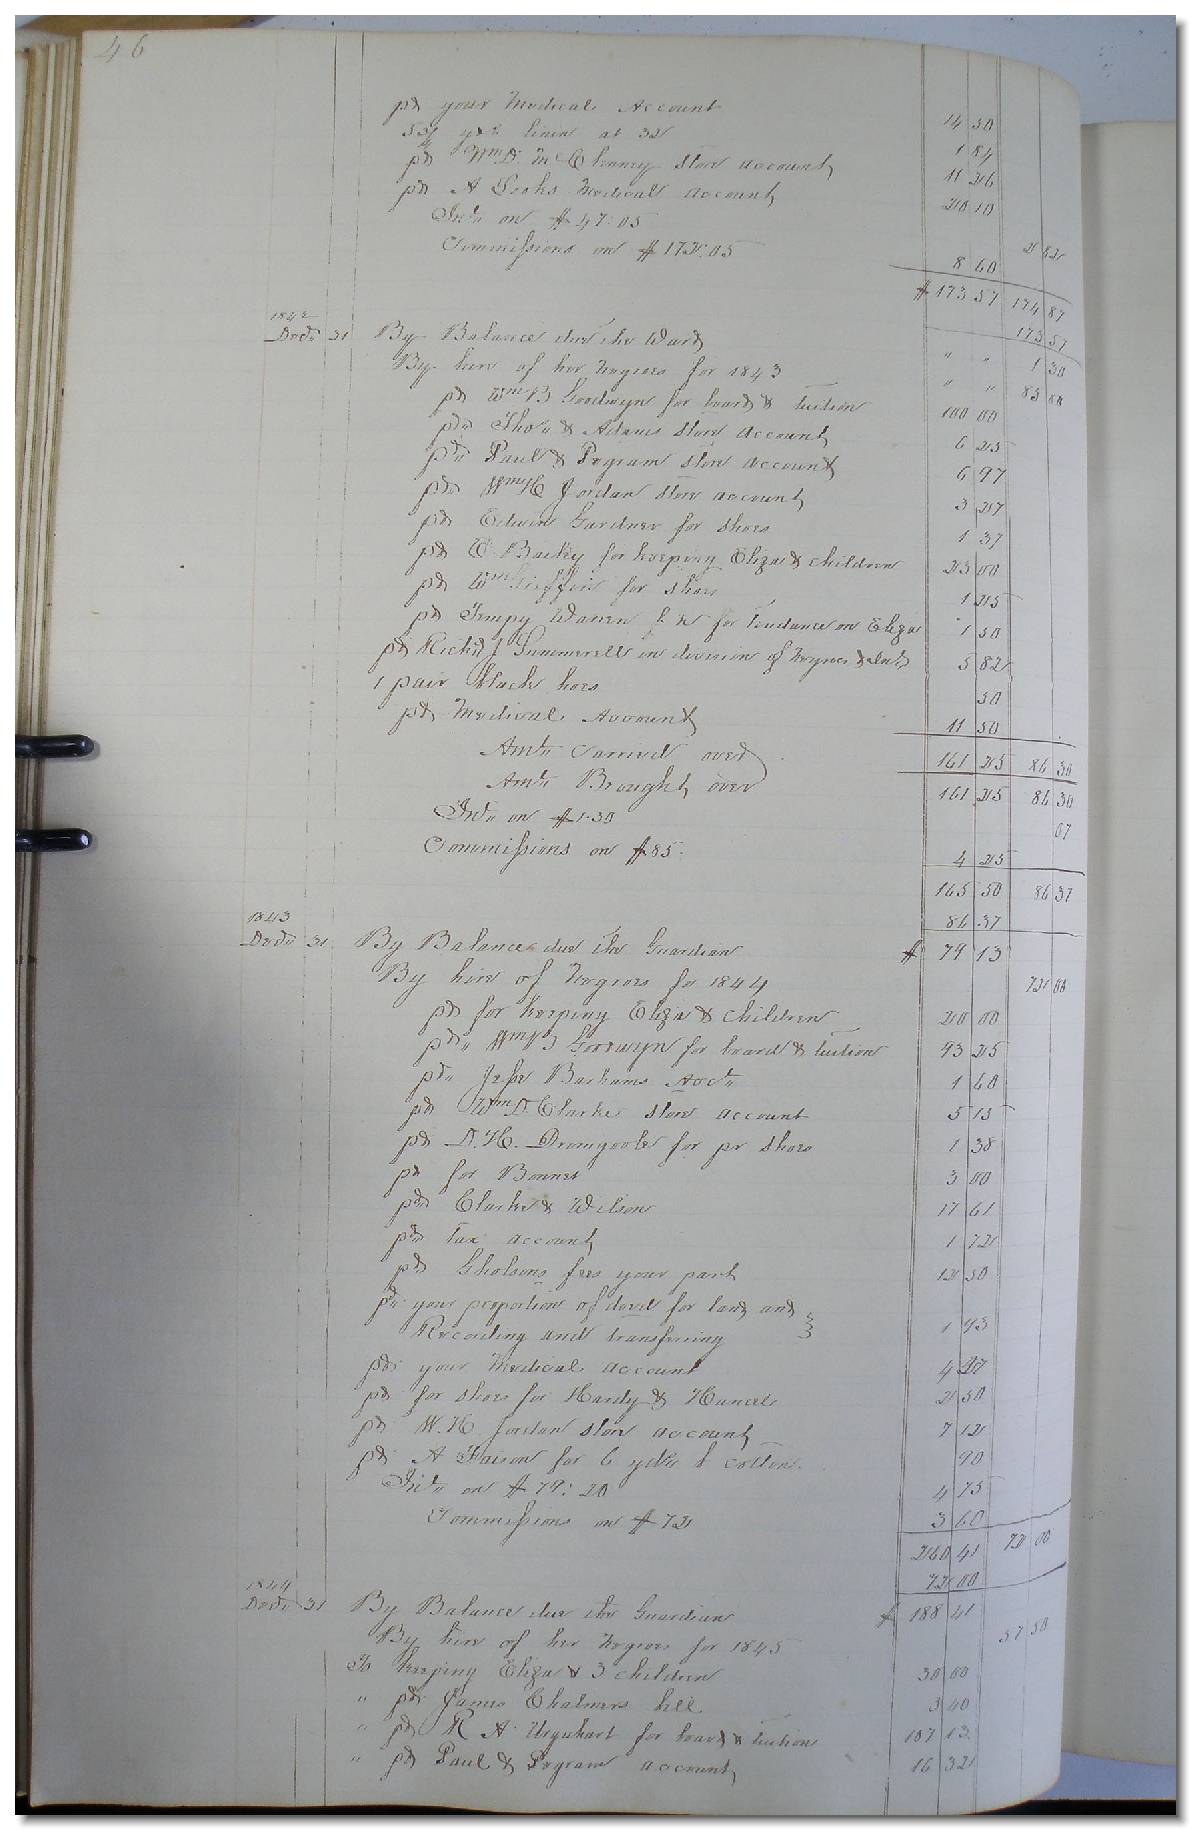 46
pd your Medical Account 14 50
yds linin at 32
pd Wm D. McClenney store account 11 26
pd A Cooks Medical account 20 10
Int" on $47:05 2 82
Commissions on $172:05 8 60
$173 57 174 87
173 57
1842
Decr 31 By Balance due the Ward " " 1 30
By hire of her Negroes for 1843 " " 85 00
pd Wm B Goodwyn for board & tuition 100 00
pd Tho" & Adams store account 6 25
pd Paul & Pegram store account 6 97
pd Wm H Jordan store account 3 27
pd Edwin Gardner for shoes 1 37
pd E. Bailey for keeping Eliza & children 23 00
pd Wm Griffin for shoes 1 25
pd Tempy Warren for tendance on Eliza 1 50
pd Richd J Summerell in division of Negroes & land 5 82
1 pair black hoes 50
pd Medical Account 11 50
Amt" Carried over 161 25 86 30
Amt" Brought over 161 25 86 30
Int" on $1.30 07
Commissions on $85. 4 25
165 50 86 37
86 37
1843
Decr 31 By Balance due the Guardian $ 79 13
By hire of Negroes for 1844 72 00
pd for keeping Eliza & children 20 00
pd" Wm B Goodwyn for board & tuition 93 25
pd" Jesse Barhams Acct" 1 60
pd Wm D. Clarke store account 5 13
pd D. H. Dromgoole for pr shoes 1 38
pd for Bonnet 3 00
pd Clarke & Wilson 17 61
pd tax account 1 72
pd Gholsons fees your part 12 50
pd your proportion of deed for land and
Recording and transfering 1 93
pd your Medical account 4 27
pd for shoes for Hardy & Hancel 2 50
pd W. H. Jordan store account 7 12
pd A Faison for 6 yds cotton 90
Int" on $79:20 4 75
Commissions on $72 3 60
260 41 72 00
72 00
1844
Decr 31 By Balance due the Guardian $ 188 41
By hire of her Negroes for 1845 57 50
To keeping Eliza & 3 children 30 00
" pd James Chalmers bill 3 00
" pd R A Urquhart for board & tuition 107 13
" pd Paul & Pegram account 16 32